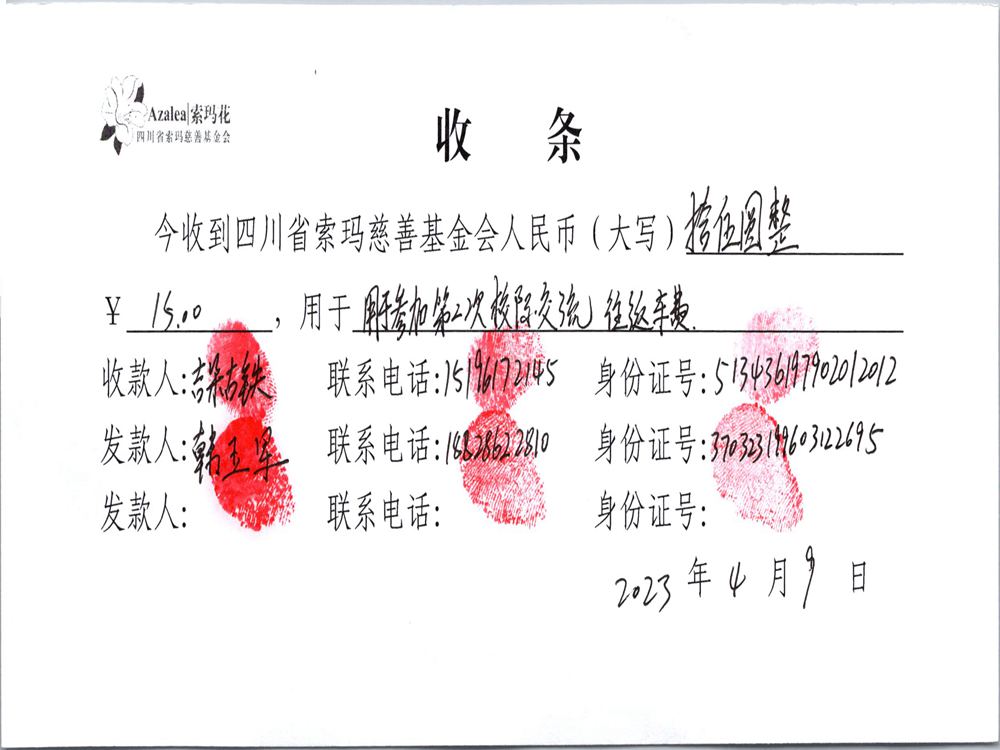 Azalea|索玛花
四川省索玛慈善基金会
收 条
今收到四川省索玛慈善基金会人民币（大写）拾伍圆整
¥ 15.00 ，用于 用于参加第二次校际交流往返车费.
收款人:吉朵古铁 联系电话:15196172145 身份证号:513436197902012012
发款人:韩玉军 联系电话:18828622810 身份证号:370323199603122695
发款人: 联系电话: 身份证号:
2023 年 4 月 9 日